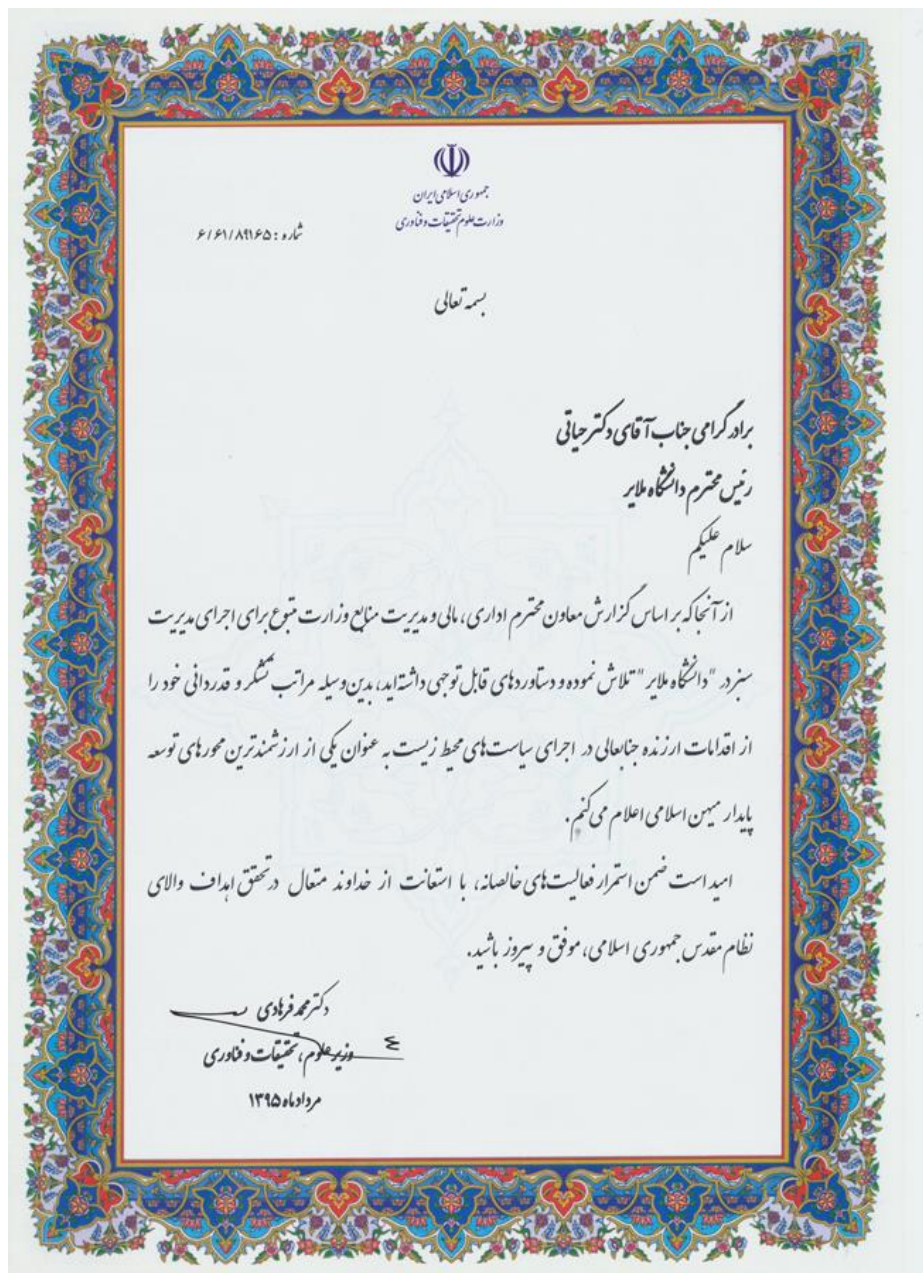 جمهوری اسلامی ایران
وزارت علوم تحقیقات و فناوری
شماره : ۶/۶۱/۸۹۱۶۵
بسمه تعالی
برادر گرامی جناب آقای دکتر حیاتی
رئیس محترم دانشگاه ملایر
سلام علیکم
از آنجا که بر اساس گزارش معاون محترم اداری، مالی و مدیریت منابع وزارت متبوع برای اجرای مدیریت
سبز در "دانشگاه ملایر" تلاش نموده و دستاوردهای قابل توجهی داشته‌اید، بدین وسیله مراتب تشکر و قدردانی خود را
از اقدامات ارزنده جنابعالی در اجرای سیاست‌های محیط زیست به عنوان یکی از ارزشمندترین محورهای توسعه
پایدار میهن اسلامی اعلام می‌کنم.
امید است ضمن استمرار فعالیت‌های خالصانه، با استعانت از خداوند متعال در تحقق اهداف والای
نظام مقدس جمهوری اسلامی، موفق و پیروز باشید.
دکتر محمد فرهادی
وزیر علوم، تحقیقات و فناوری
مرداد ماه ۱۳۹۵